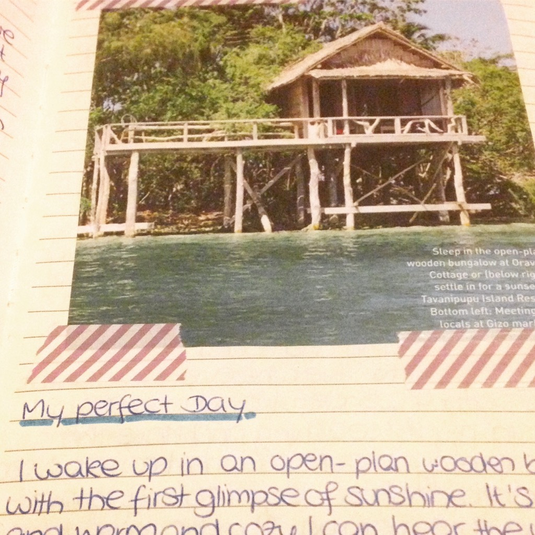 Sleep in the open-pla
wooden bungalow at Orav
Cottage or (below rig
settle in for a sunse
Tavanipupu Island Res
Bottom left: Meeting
locals at Gizo mar
My perfect Day
I wake up in an open-plan wooden b
with the first glimpse of sunshine. It's
and warm and cozy. I can hear the